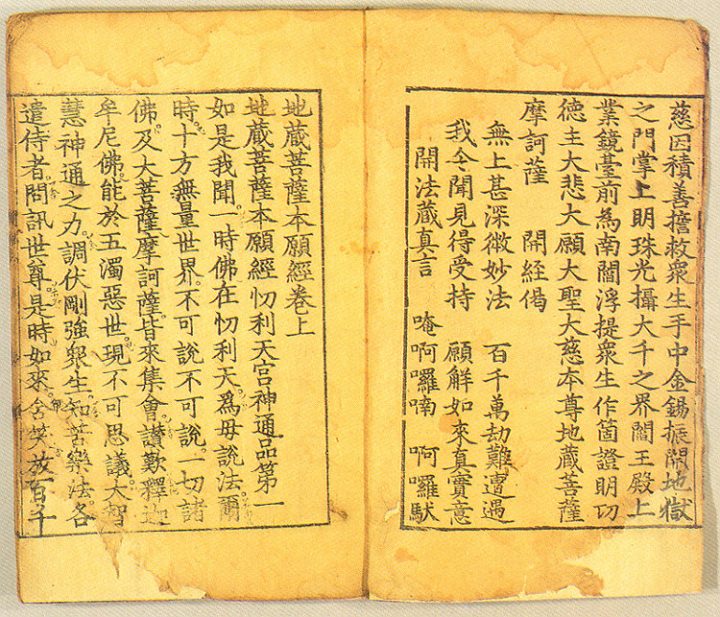 慈因積善擔救眾生手中金錫振開地獄
之門掌上明珠光攝大千之界閻王殿上
業鏡臺前為南閻浮提眾生作箇證明切
德主大悲大願大聖大慈本尊地藏菩薩
摩訶薩　開経偈
無上甚深微妙法　百千萬劫難遭遇
我今聞見得受持　願解如來真實意
開法蔵真言　唵啊囉喃　啊囉馱
地蔵菩薩本願經卷上
地蔵菩薩本願經忉利天宮神通品第一
如是我聞一時佛在忉利天爲母說法爾
時十方無量世界不可說不可說一切諸
佛及大菩薩摩訶薩皆來集會讃歎釋迦
牟尼佛能於五濁惡世現不可思議大智
慧神通之力調伏剛強衆生知苦樂法各
遣侍者問訊世尊是時如來含笑放百千